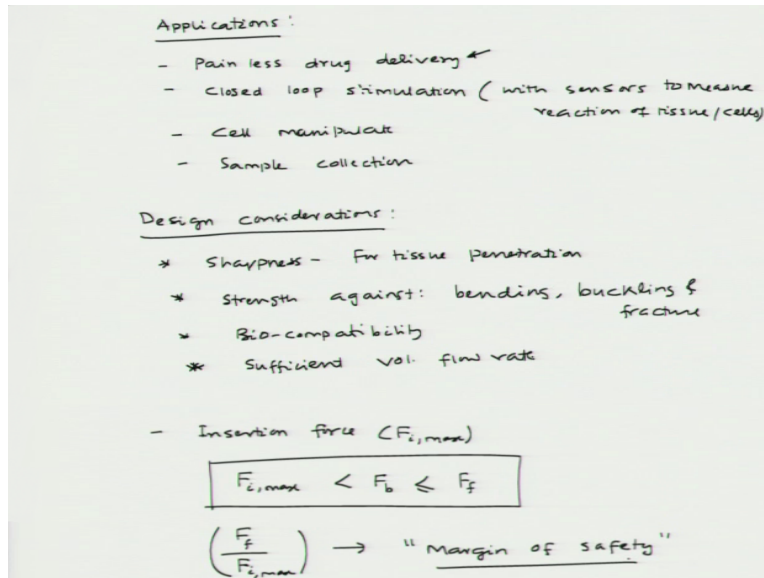 Applications:
- Pain less drug delivery
- Closed loop stimulation (with sensors to measure
reaction of tissue/cells)
- Cell manipulate
- Sample collection
Design considerations:
* Sharpness - For tissue penetration
* Strength against: bending, buckling &
fracture
* Bio-compatibility
* Sufficient vol. flow rate
- Insertion force (F_i,max)
F_i,max < F_b ≤ F_f
(F_f / F_i,max) → "Margin of safety"